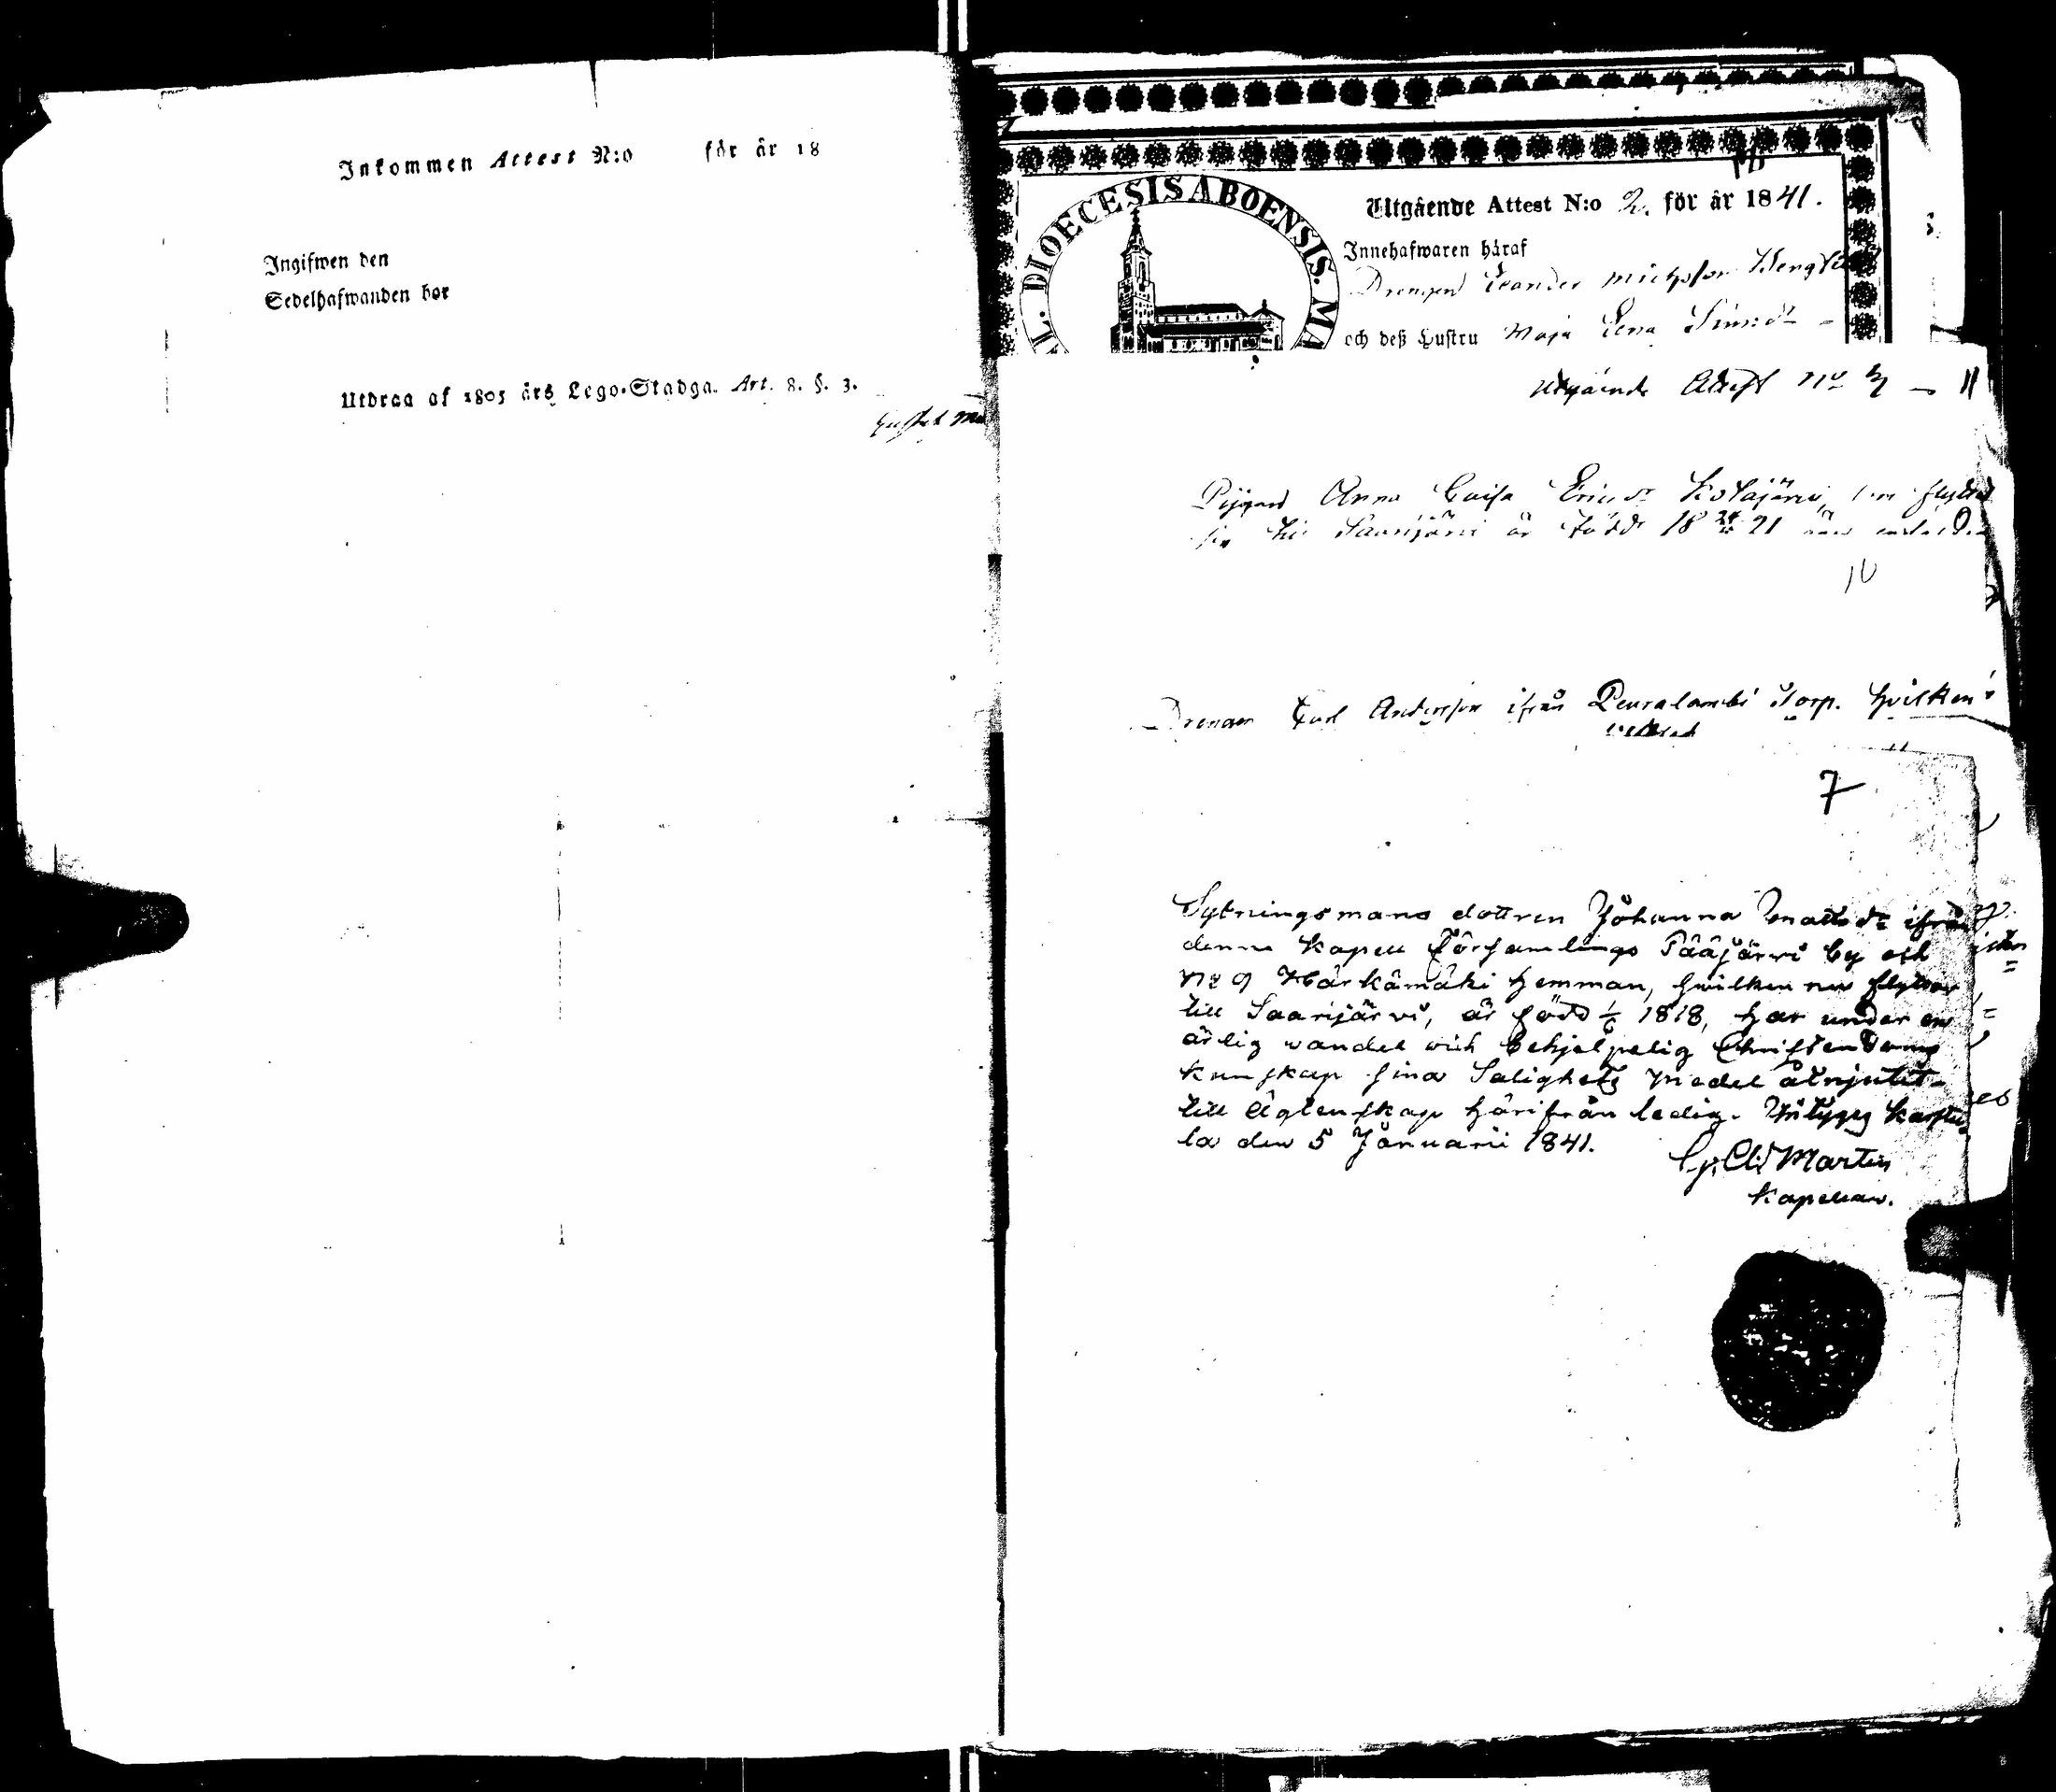 Inkommen Attest N:o för år 18
Ingifwen den
Sedelhafwanden bor
Utdrag af 1805 års Lego-Stadga. Art. 8. §. 3.
L. DIOECESIS ABOENSIS. MA
Utgående Attest N:o 2. för år 1841.
Innehafwaren häraf
Drengen Leander Michelsson
och deß Hustru Maja Lena Simsdr
Utgående Attest No
11
Pigan Anna Caisa Ericsdr Kolojärvi, som flyttar
till Saarijärvi är född 18 21
10
Drengen Carl Andersson ifrån Peuralambi Torp. hvilken
7
Sytningsmans dottren Johanna Mattsdr ifrån
denna Kapell Församlings Pääjärwi by och
No 9 Härkämäki hemman, hwilken nu flyttar
till Saarijärwi, är född 1/6 1818, har under en
ärlig wandel och behjelpelig Christendoms
kunskap sina Salighets medel åtnjutit-
till Ägtenskap härifrån ledig. Intygas Karstu-
la den 5 Januarii 1841.
Martin
Kapellan.